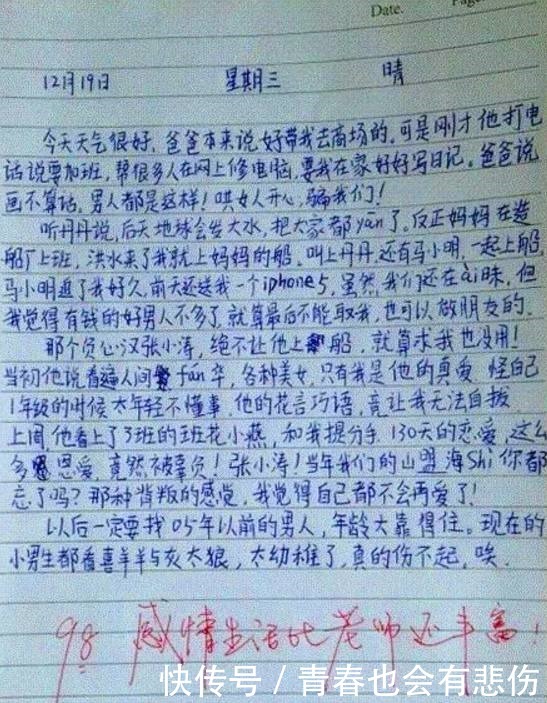 Date.
Page
12月19日 星期三 晴
今天天气很好,爸爸本来说好带我去商场的,可是刚才他打电
话说要加班,帮很多人在网上修电脑,要我在家好好写日记。爸爸说
画不算话,男人都是这样!哄女人开心,骗我们!
听丹丹说,后天地球会发大水,把大家都yān了。反正妈妈在造
船厂上班,洪水来了我就上妈妈的船,叫上丹丹,还有马小明,一起上船,
马小明追了我好久,前天还送我一个iphone5,虽然我们还在ài昧,但
我觉得有钱的好男人不多了,就算最后不能取我,也可以做朋友的.
那个负心汉张小涛,绝不让他上船,就算求我也没用!
当初他说看遍人间fán华,各种美女,只有我是他的真爱,怪自己
1年级的时候太年轻不懂事,他的花言巧语,竟让我无法自拔.
上周他看上了3班的班花小燕,和我提分手,130天的恋爱,这么
多恩爱,竟然被辜负!张小涛!当年我们的山盟海Shi你都
忘了吗?那种背叛的感觉,我觉得自己都不会再爱了!
以后一定要找05年以前的男人,年龄大靠得住。现在的
小男生都看喜羊羊与灰太狼,太幼稚了,真的伤不起,唉.
98 感情生活比老师还丰富!
快传号/青春也会有悲伤